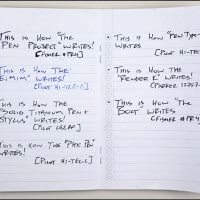 This is How "The
Pen Project" Writes!
[Fisher #PR4]
This is How The
Writes!
[Pilot Hi-Tec-C]
This is How The
"Solid Titanium Pen +
Stylus" Writes!
[Pilot G2 RF]
This is How The Pen
Writes!
[Pilot Hi-Tec-C]
This is How "Pen Type-
Writes
[Pilot Hi-Tec-C]
This is How "The
Writes!
[Parker
This is How "The
Bolt Writes
[Fisher #PR4]